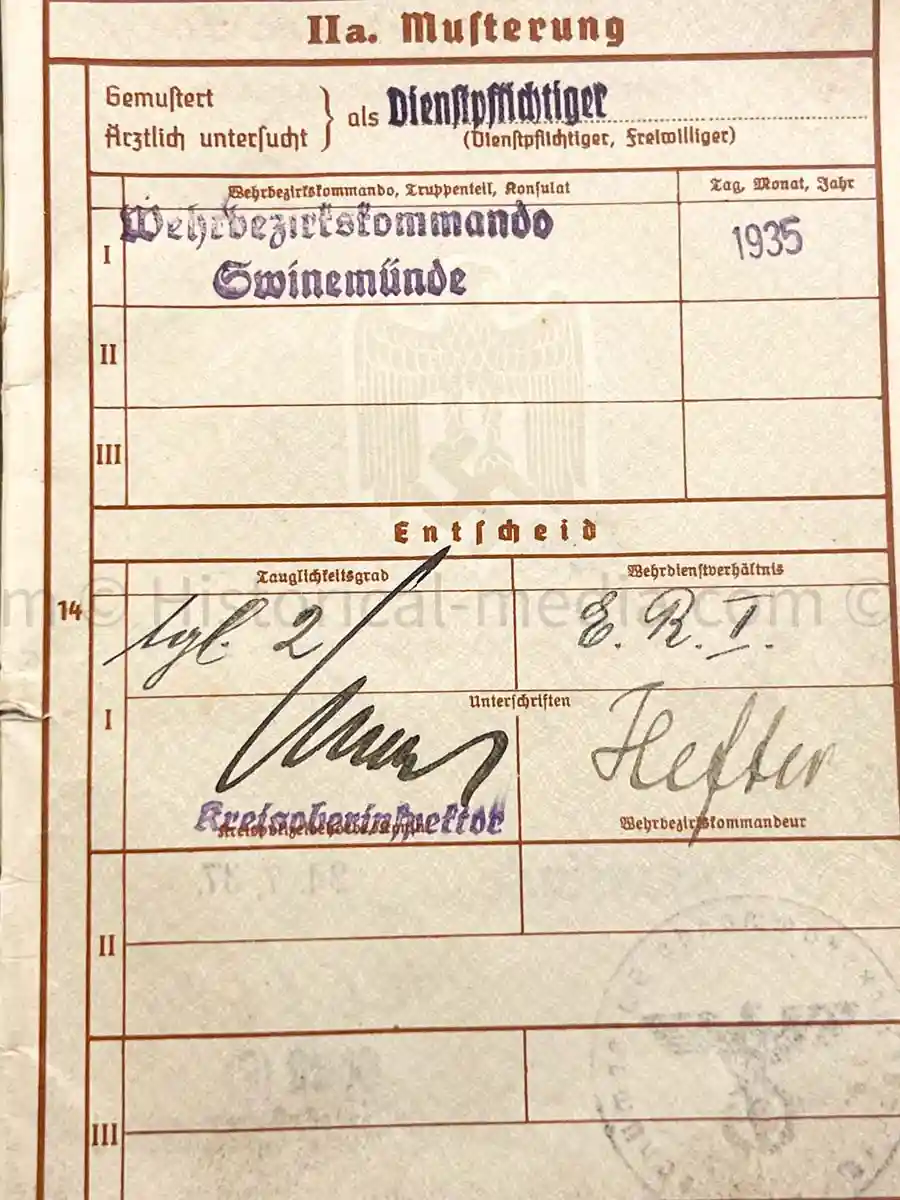 IIa. Musterung
Gemustert
Ärztlich untersucht } als Dienstpflichtiger
(Dienstpflichtiger, Freiwilliger)
Wehrbezirkskommando, Truppenteil, Konsulat
Tag, Monat, Jahr
I
Wehrbezirkskommando
Swinemünde
1935
II
III
Entscheid
Tauglichkeitsgrad
Wehrdienstverhältnis
© Historical-media.com ©
14
tgl. 2
E. R. I.
I
Unterschriften
Hefter
Kreisoberinspektor
Wehrbezirkskommandeur
II
III